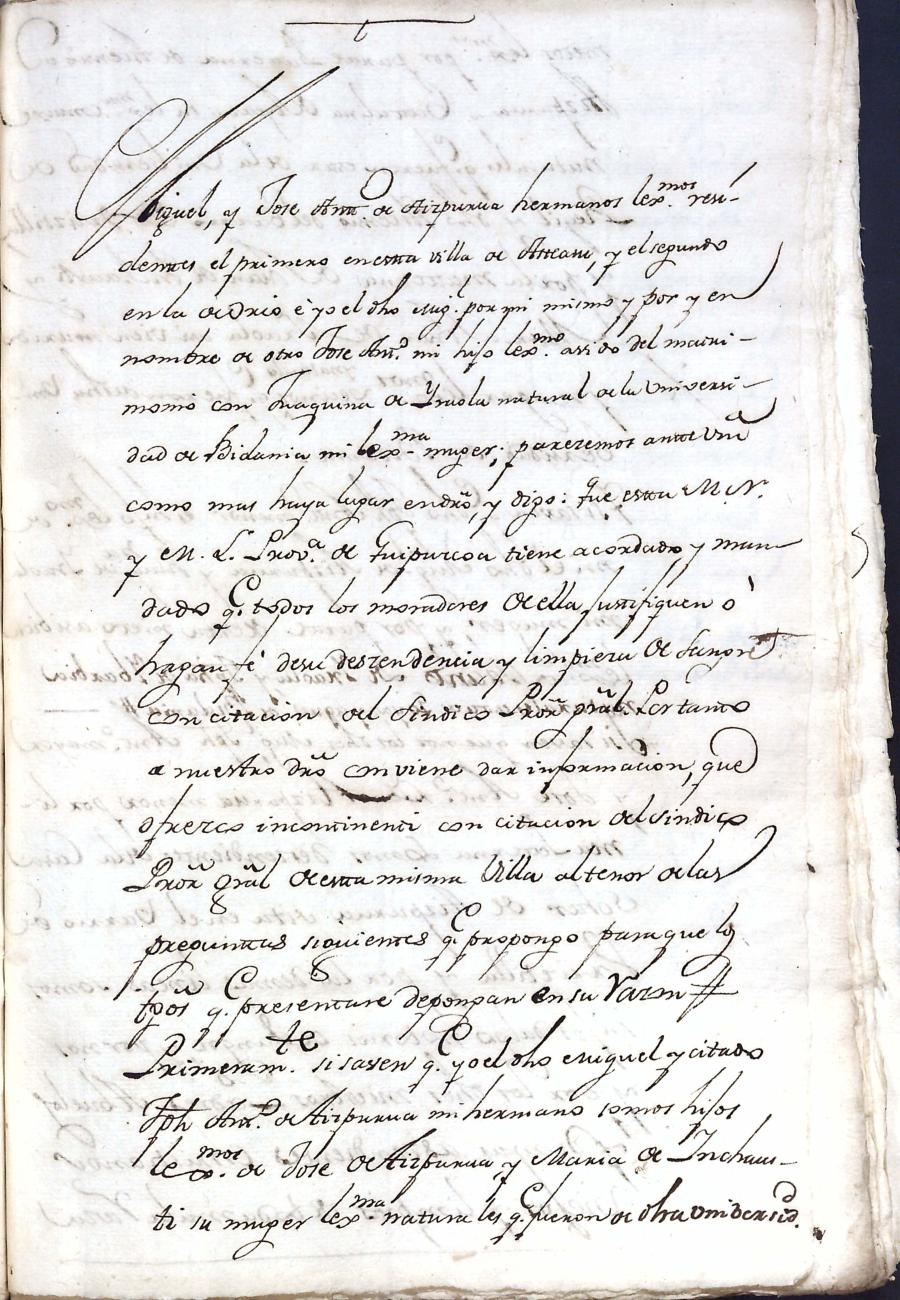 Miguel, y Jose Antt.º de Aizpurua hermanos lex.mos resi-
dentes el primero en esta villa de Asteasu, y el segundo
en la de Orio è yo el dho Mig.l por mi mismo y por y en
nombre de otro Jose Ant.º mi hijo lex.mo avido del matri-
monio con Juaquina de Yraola natural de la Universi-
dad de Bidania mi lex.ma muger; parezemos ante Vm̃d
como mas haya lugar en dr̃o, y digo: que esta M. N.
y M. L. Prov.ª de Guipuzcoa tiene acordado, y man-
dado q.e todos los moradores de ella justifiquen ò
hagan fè de su deszendencia y limpieza de Sangre
con citacion del Sindico Pror̃ gr̃al. Por tanto
a nuestro dr̃o conviene dar informacion, que
ofrezco incontinenti con citacion del Sindico
Pror̃ gr̃al de esta misma Villa al tenor de las
preguntas siguientes q.e propongo para que los
tg̃os q.e presentare depongan en su razon #
Primeram.te si saven q.e yo el dho Miguel y citado
Jph Ant.º de Aizpurua mi hermano somos hijos
lex.mos de Jose de Aizpurua y Maria de Inchaus-
ti su muger lex.ma naturales q.e fueron de dha Universid.d